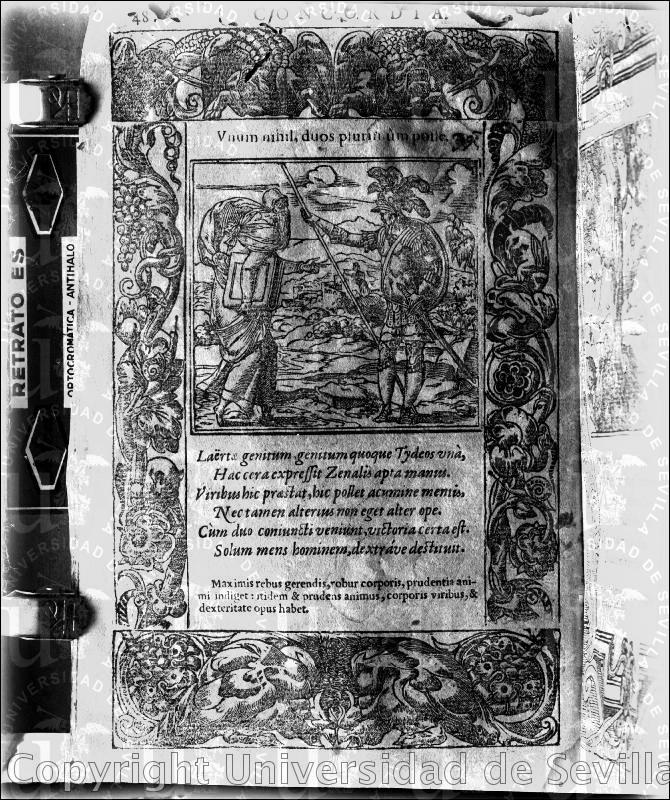 48
CONCORDIA.
Vnum nihil, duos plurimum posse.
Laërtæ genitum, genitum quoque Tydeos vnà,
Hac cera expressit Zenalis apta manus.
Viribus hic præstat, hic pollet acumine mentis,
Nec tamen alterius non eget alter ope.
Cùm duo coniuncti veniunt, victoria certa est.
Solum mens hominem, dextrave destituit.
Maximis rebus gerendis, robur corporis, prudentia ani-
mi indiget: itidem & prudens animus, corporis viribus, &
dexteritate opus habet.
RETRATO ES
ORTOCROMÁTICA - ANTIHALO
Copyright Universidad de Sevilla